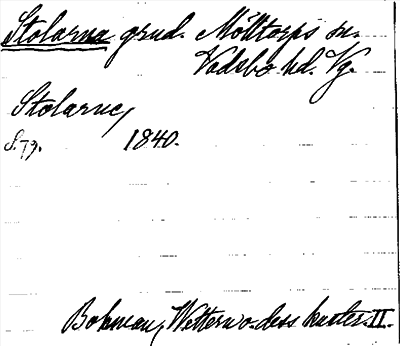 Stolarna grud. Mölltorps sn.
Vadsbo hd. Vg.
Stolarne,
S. 79. 1840.
Bohman, Wettern o. dess kuster. II.